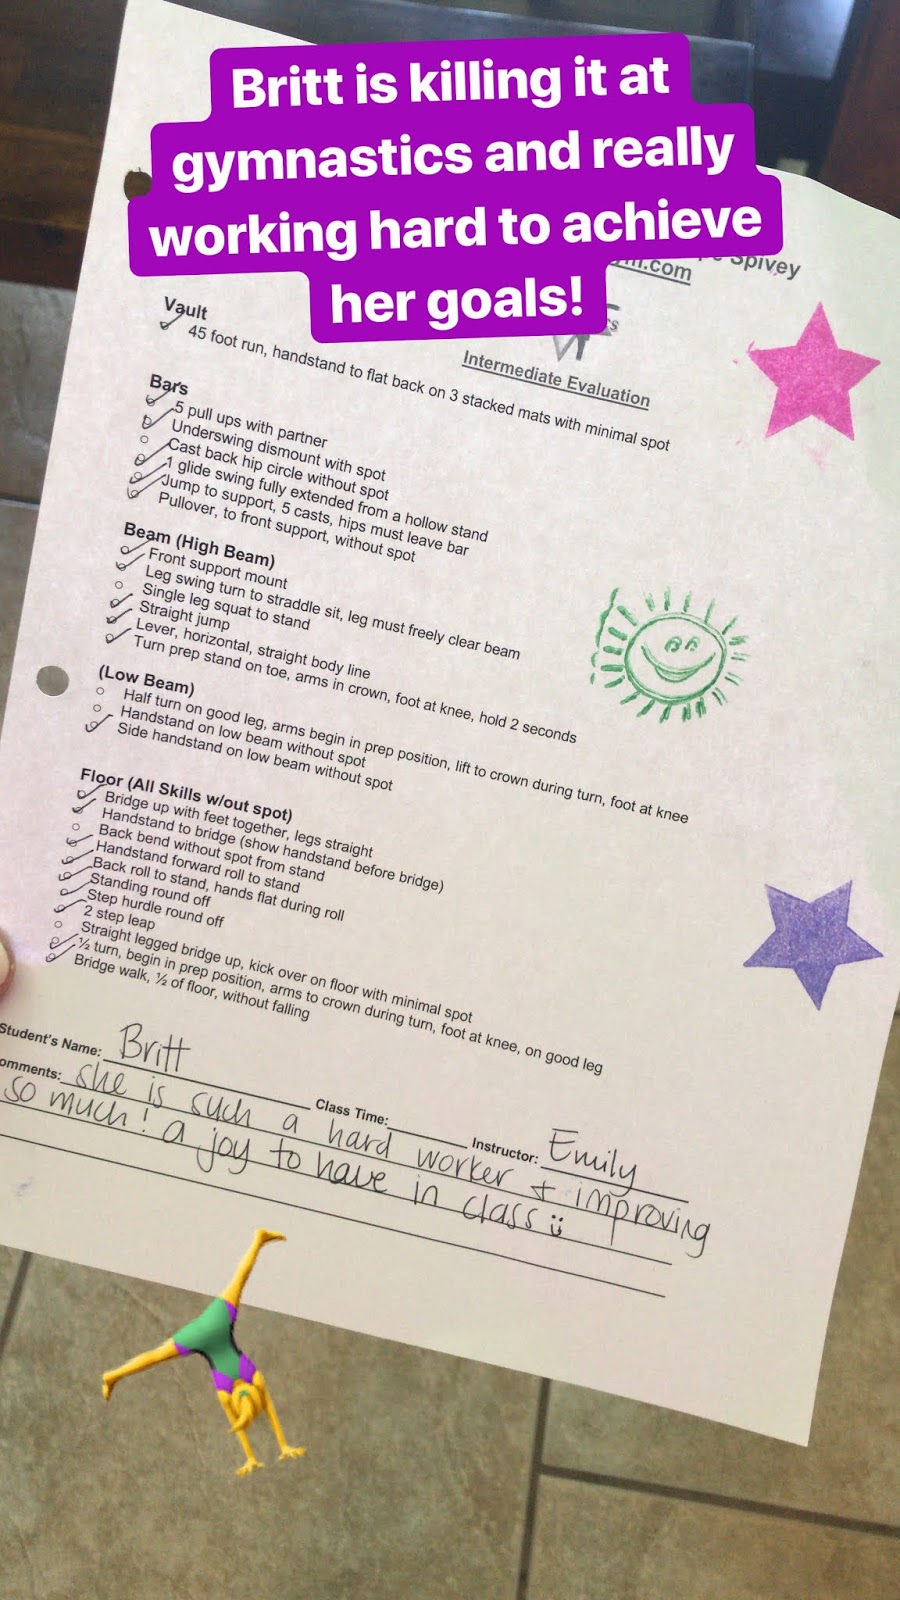 Britt is killing it at
gymnastics and really
working hard to achieve
her goals!
Spivey
.com
Intermediate Evaluation
Vault
45 foot run, handstand to flat back on 3 stacked mats with minimal spot
Bars
5 pull ups with partner
Underswing dismount with spot
Cast back hip circle without spot
1 glide swing fully extended from a hollow stand
Jump to support, 5 casts, hips must leave bar
Pullover, to front support, without spot
Beam (High Beam)
Front support mount
Leg swing turn to straddle sit, leg must freely clear beam
Single leg squat to stand
Straight jump
Lever, horizontal, straight body line
Turn prep stand on toe, arms in crown, foot at knee, hold 2 seconds
(Low Beam)
Half turn on good leg, arms begin in prep position, lift to crown during turn, foot at knee
Handstand on low beam without spot
Side handstand on low beam without spot
Floor (All Skills w/out spot)
Bridge up with feet together, legs straight
Handstand to bridge (show handstand before bridge)
Back bend without spot from stand
Handstand forward roll to stand
Back roll to stand, hands flat during roll
Standing round off
Step hurdle round off
2 step leap
Straight legged bridge up, kick over on floor with minimal spot
½ turn, begin in prep position, arms to crown during turn, foot at knee, on good leg
Bridge walk, ½ of floor, without falling
Student's Name: Britt Class Time: Instructor: Emily
omments: she is such a hard worker + improving
so much! a joy to have in class :)